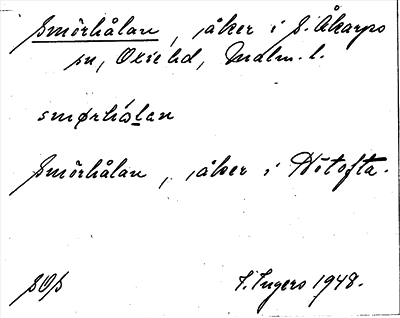 Smörhålan, åker i S. Åkarps
sn, Oxie hd, Malm. l.
smørhålan
Smörhålan, åker i Hötofta.
SOS
I. Ingers 1948.